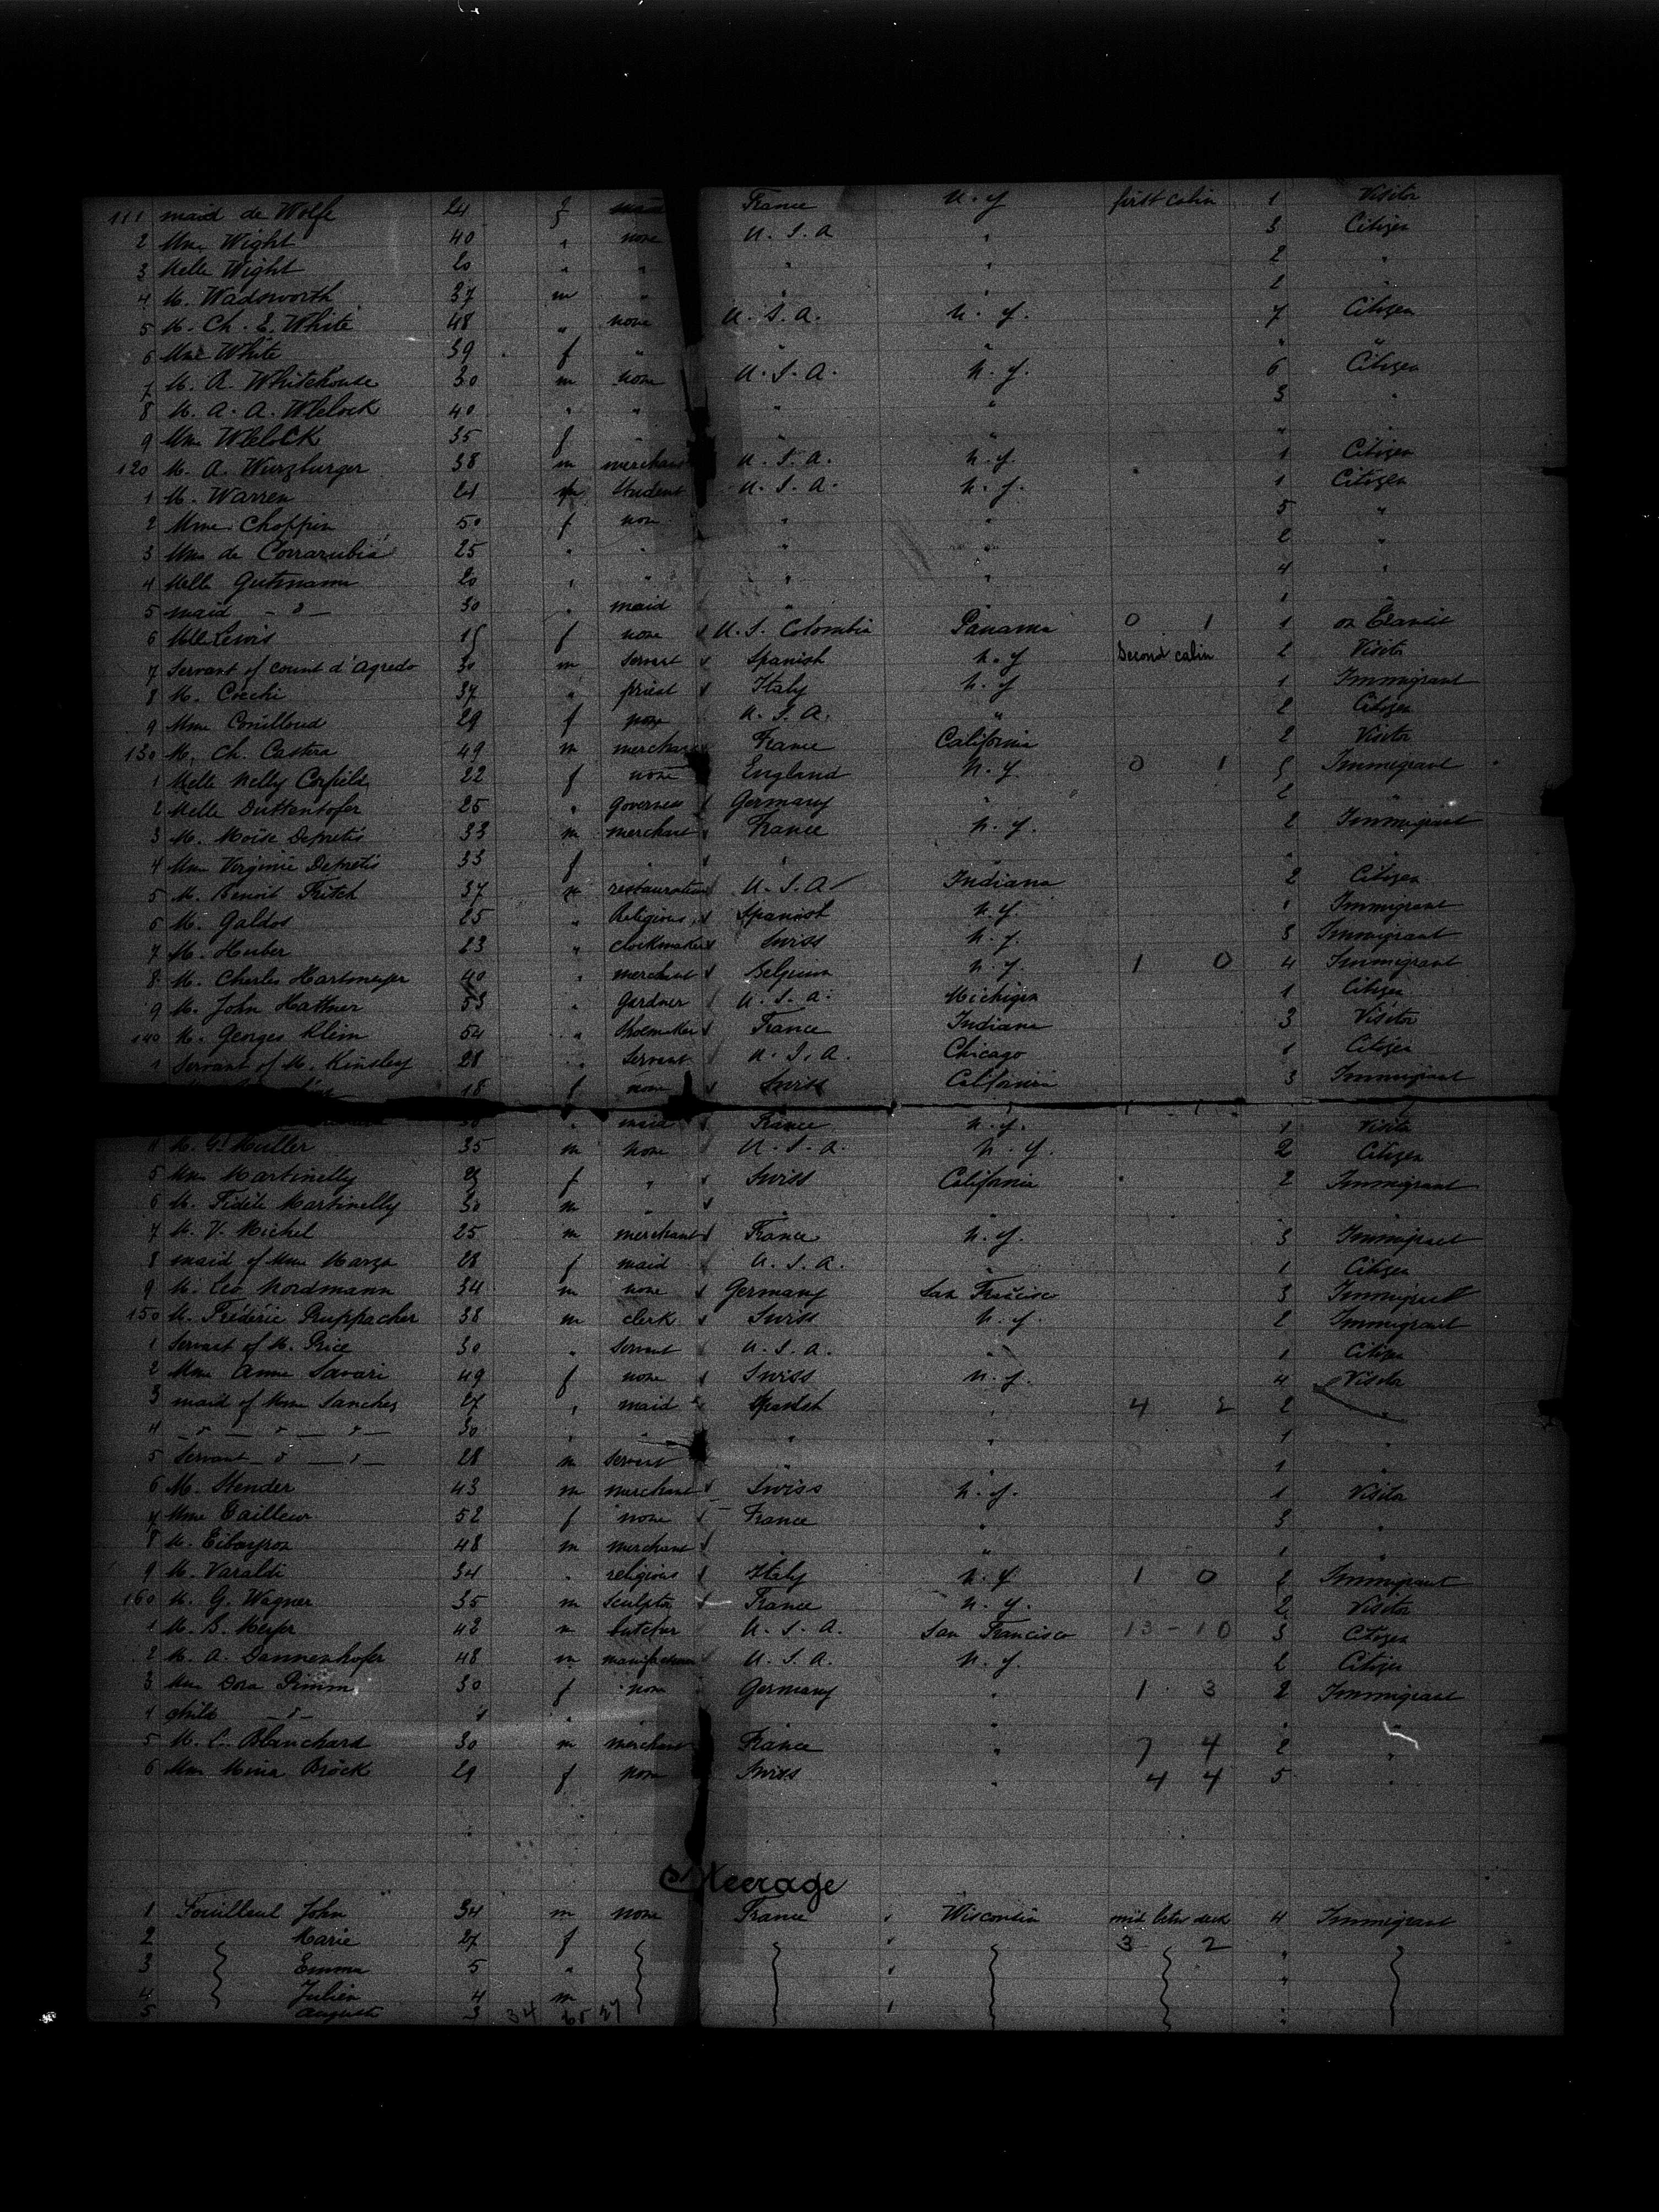 111 maid de Wolfe 24 f maid France N. Y first cabin 1 Visitor
2 Mme Wight 40 " none U. S. A " 3 Citizen
3 Melle Wight 20 " " " " 2 "
4 M. Wadsworth 37 m " " " 2 "
5 M. Ch. E. White 48 " none U. S. A. N. Y. 7 Citizen
6 Mme White 39 f " " " " "
7 M. A. Whitehouse 30 m none U. S. A. N. Y. 6 Citizen
8 M. A. A. Wlelock 40 " " " " 3 "
9 Mme Wlelock 35 f " " " " "
120 M. A. Wurzburger 38 m merchant U. S. A. N. Y. 1 Citizen
1 M. Warren 21 m Student U. S. A. N. Y. 1 Citizen
2 Mme Choppin 50 f non " " 5 "
3 Mme de Covarrubia 25 " " " " 2 "
4 Melle Gutmann 20 " " " " 4 "
5 maid - d - 30 " maid " " 1 "
6 Melle Lewis 15 f none U. S. Colombia Panama 0 1 1 on Transit
7 Servant of count d'Agredo 30 m Servant Spanish N. Y Second cabin 2 Visitor
8 M. Cocchi 37 " priest Italy N. Y 1 Immigrant
9 Mme Couilloud 29 f none U. S. A. " 2 Citizen
130 M. Ch. Castera 49 m merchant France California 2 Visitor
1 Melle Nelly Corfield 22 f none England N. Y. 0 1 5 Immigrant
2 Melle Duttenhofer 25 " Governess Germany " 2 "
3 M. Moïse Depretis 33 m merchant France N. Y. 2 Immigrant
4 Mme Virginie Depretis 33 f " " " "
5 M. Benoit Fritch 37 m restaurateur U. S. A Indiana 2 Citizen
6 M. Galdos 25 " Religious Spanish N. Y. 1 Immigrant
7 M. Huber 23 " Clockmaker Swiss N. Y. 3 Immigrant
8 M. Charles Hartmeyer 40 " merchant Belgium N. Y. 1 0 4 Immigrant
9 M. John Hattner 53 " Gardner U. S. A. Michigan 1 Citizen
140 M. Georges Klein 54 " Shoemaker France Indiana 3 Visitor
1 Servant of M. Kinsley 28 " Servant U. S. A. Chicago 1 Citizen
18 f none Swiss California 3 Immigrant
" maid France N. Y. 1 Visitor
4 M. G. Muller 35 m none U. S. A. N. Y. 2 Citizen
5 Mme Martinelly f " Swiss California 2 Immigrant
6 M. Fidèle Martinelly 30 m " " " "
7 M. V. Michel 25 m merchant France N. Y. 3 Immigrant
8 maid of Mme Marza 28 f maid U. S. A. " 1 Citizen
9 M. Leo Nordmann 34 m none Germany San Francisco 3 Immigrant
150 M. Frédéric Ruppacher 38 m clerk Swiss N. Y. 2 Immigrant
1 Servant of M. Price 30 " Servant U. S. A. " 1 Citizen
2 Mme Anna Savari 49 f none Swiss N. Y. 4 Visitor
3 maid of Mme Sanchez 27 " maid Spanish " 4 2 2 "
4 - d - d - d - 30 " " " " 1 "
5 Servant - d - d - 28 m Servant " " 1 "
6 M. Stender 43 m merchant Swiss N. Y. 1 Visitor
7 Mme Tailleur 52 f none France " 3 "
8 M. 48 m merchant " " 1 "
9 M. Varaldi 34 " religious Italy N. Y 1 0 2 Immigrant
160 M. G. Wagner 35 m Sculptor France N. Y. 2 Visitor
1 M. B. Meyer 42 m butcher U. S. A. San Francisco 13 - 10 3 Citizen
2 M. A. Dannenhofer 48 m manufacturer U. S. A. N. Y. 2 Citizen
3 Mme Dora Pimm 30 f none Germany " 1 3 2 Immigrant
4 child - d - " " " "
5 M. C. Blanchard 30 m merchant France " 7 4 2 "
6 Mme Mina Bröck 29 f none Swiss " 4 4 5 "
Steerage
1 Fouilleul John 34 m none France Wisconsin mid betw deck 4 Immigrant
2 Marie 27 f 3 2 "
3 Emma 5 " "
4 Julien 4 m "
5 Auguste 3 34 65 27 "